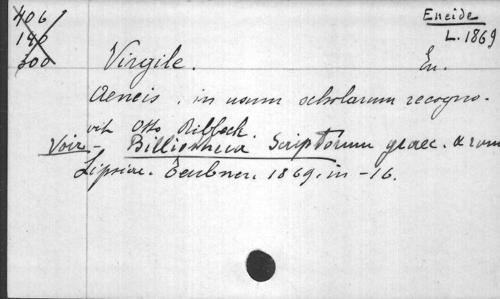 406
140
300
Eneide
L. 1869
Virgile. En.
Aeneis, in usum scholarum recogno-
vit Otto Ribbeck.
Voir - Billiotheca Scriptorum graec. & rom
Lipsiae. Teubner. 1869. in-16.